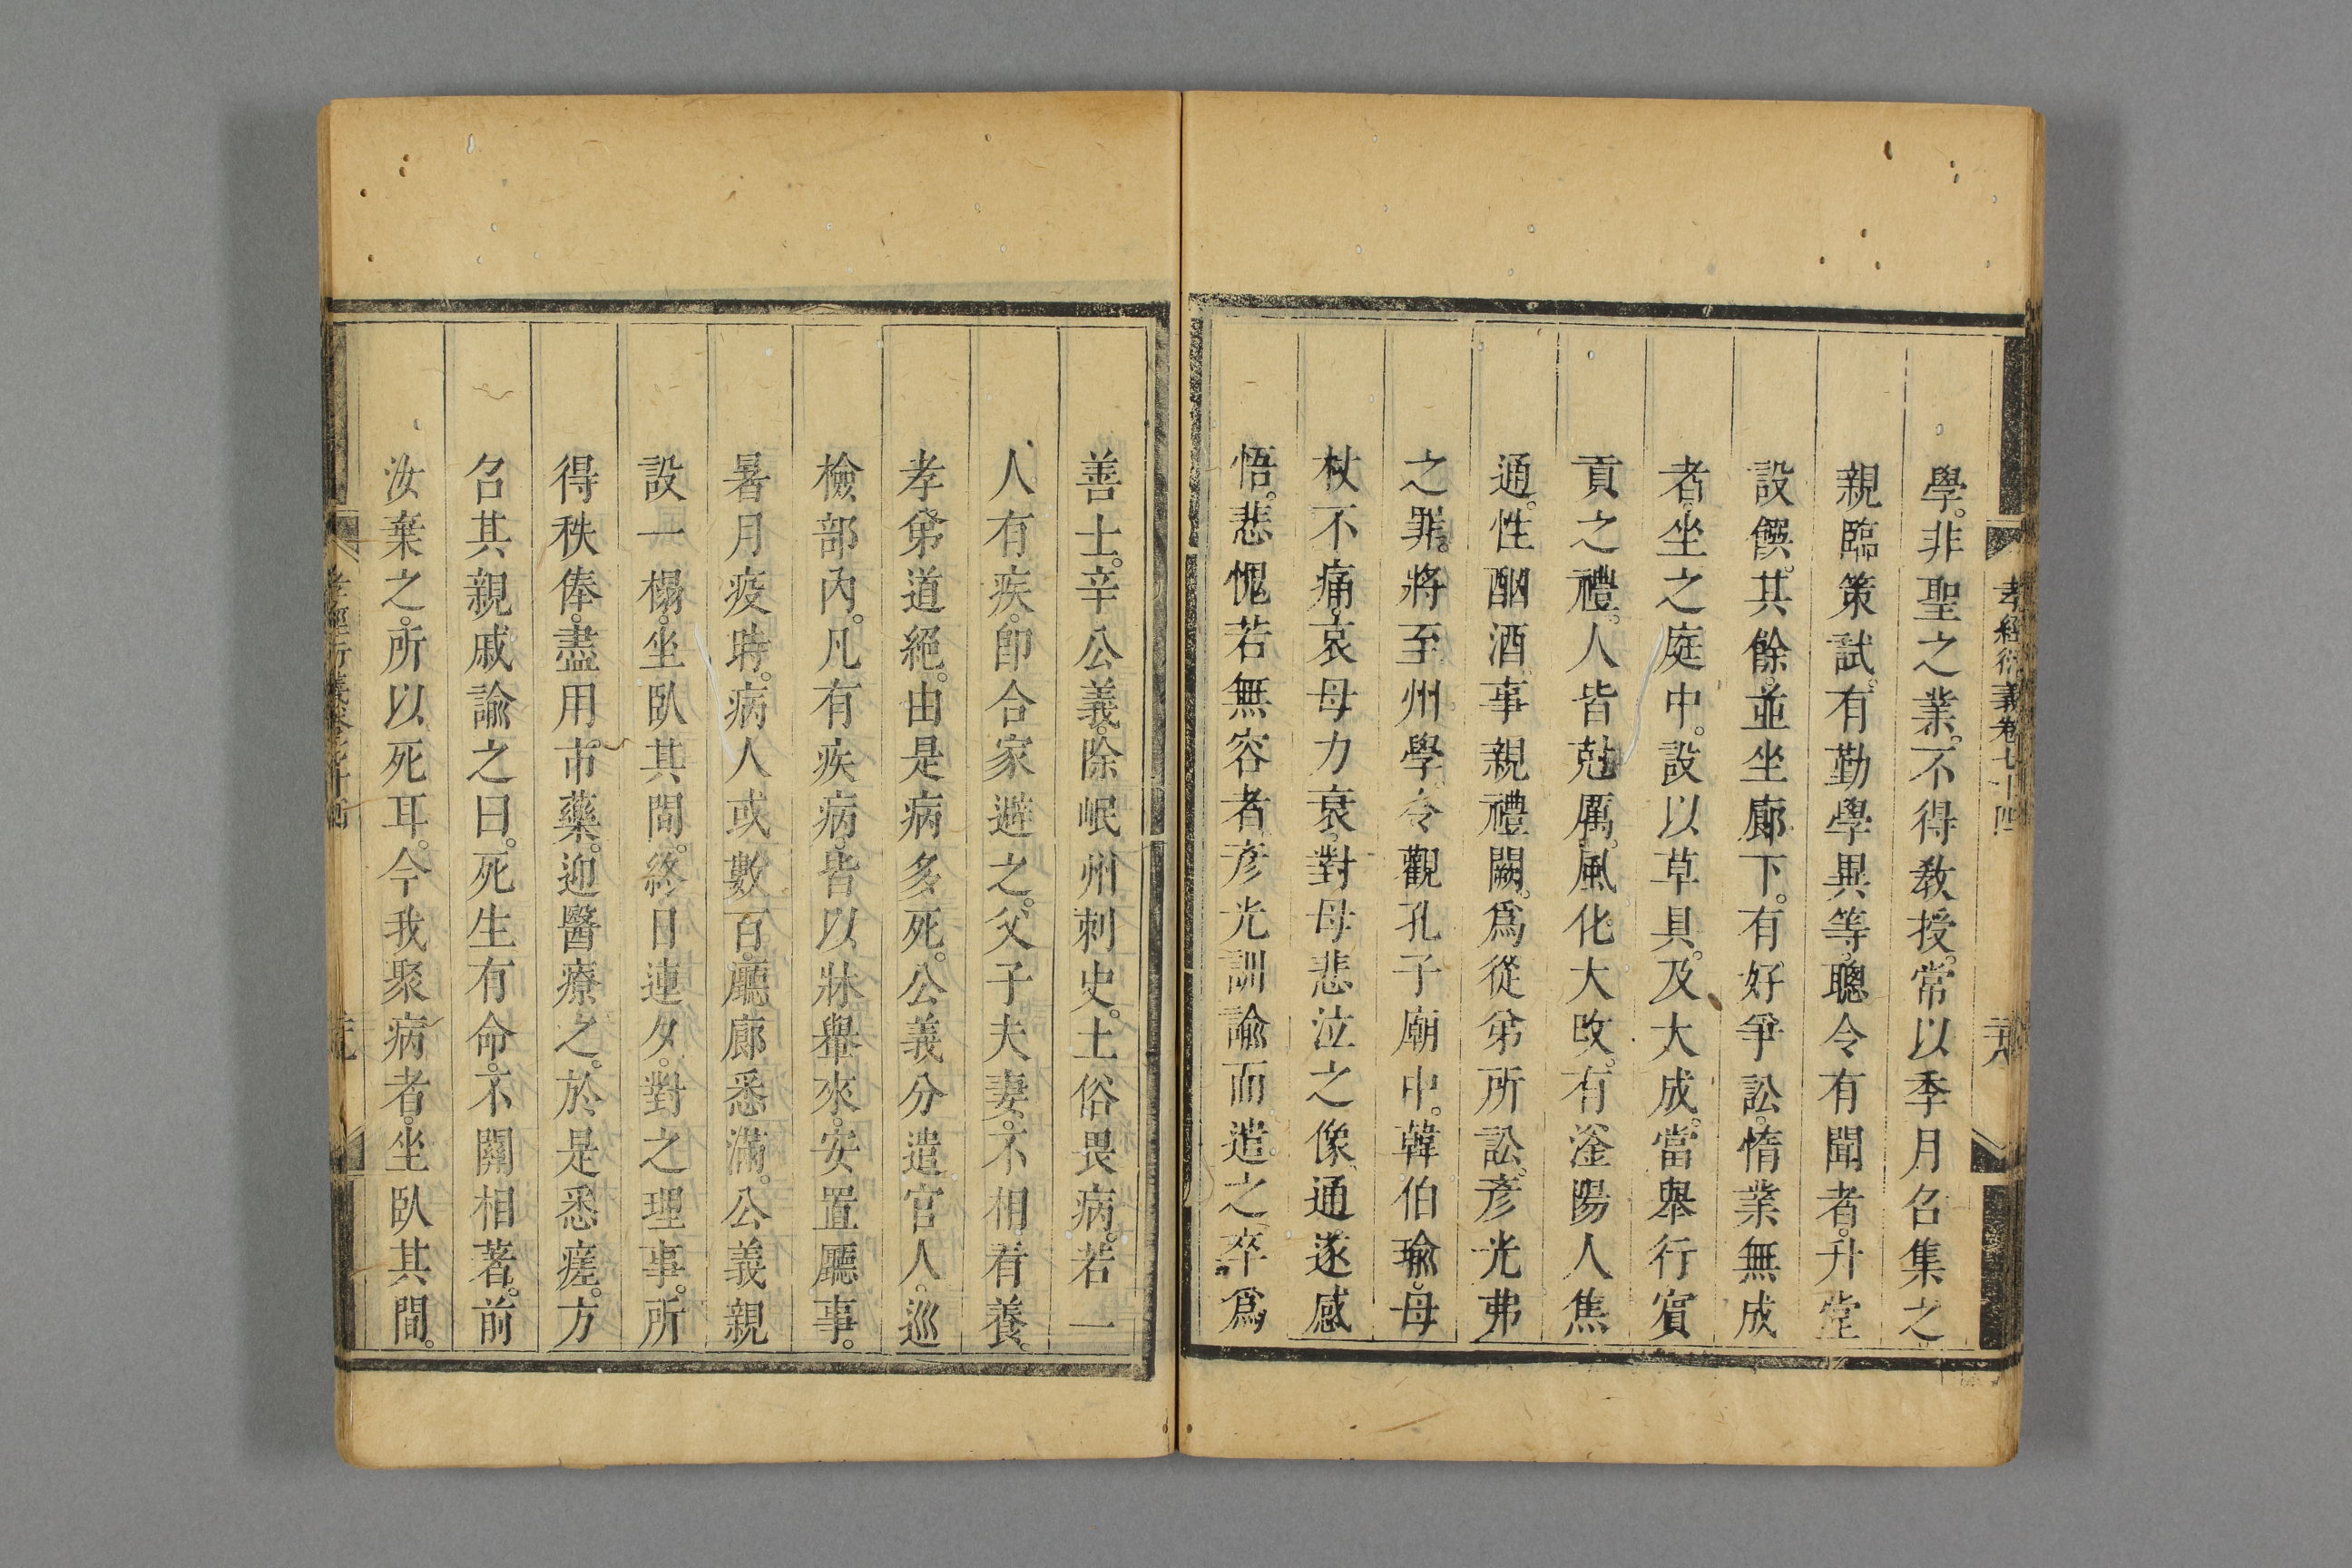 孝經衍義卷七十四
學。非聖之業。不得教授。常以季月召集之。
親臨策試。有勤學異等。聰令有聞者。升堂
設饌。其餘並坐廊下。有好爭訟。惰業無成
者。坐之庭中。設以草具。及大成。當舉行賓
貢之禮。人皆尅厲。風化大改。有滏陽人焦
通。性酗酒。事親禮闕。爲從弟所訟。彥光弗
之罪。將至州學。令觀孔子廟中。韓伯瑜。母
杖不痛。哀母力衰。對母悲泣之像。通遂感
悟。悲愧若無容者。彥光訓諭而遣之。卒爲
善士。辛公義。除岷州刺史。土俗畏病。若一
人有疾。卽合家避之。父子夫妻。不相看養。
孝弟道絕。由是病多死。公義分遣官人。巡
檢部內。凡有疾病。皆以牀舉來。安置廳事。
暑月疫時。病人或數百。廳廊悉滿。公義親
設一榻。坐臥其間。終日連夕。對之理事。所
得秩俸。盡用市藥。迎醫療之。於是悉瘥。方
召其親戚諭之曰。死生有命。不關相著。前
汝棄之。所以死耳。今我聚病者。坐臥其間。